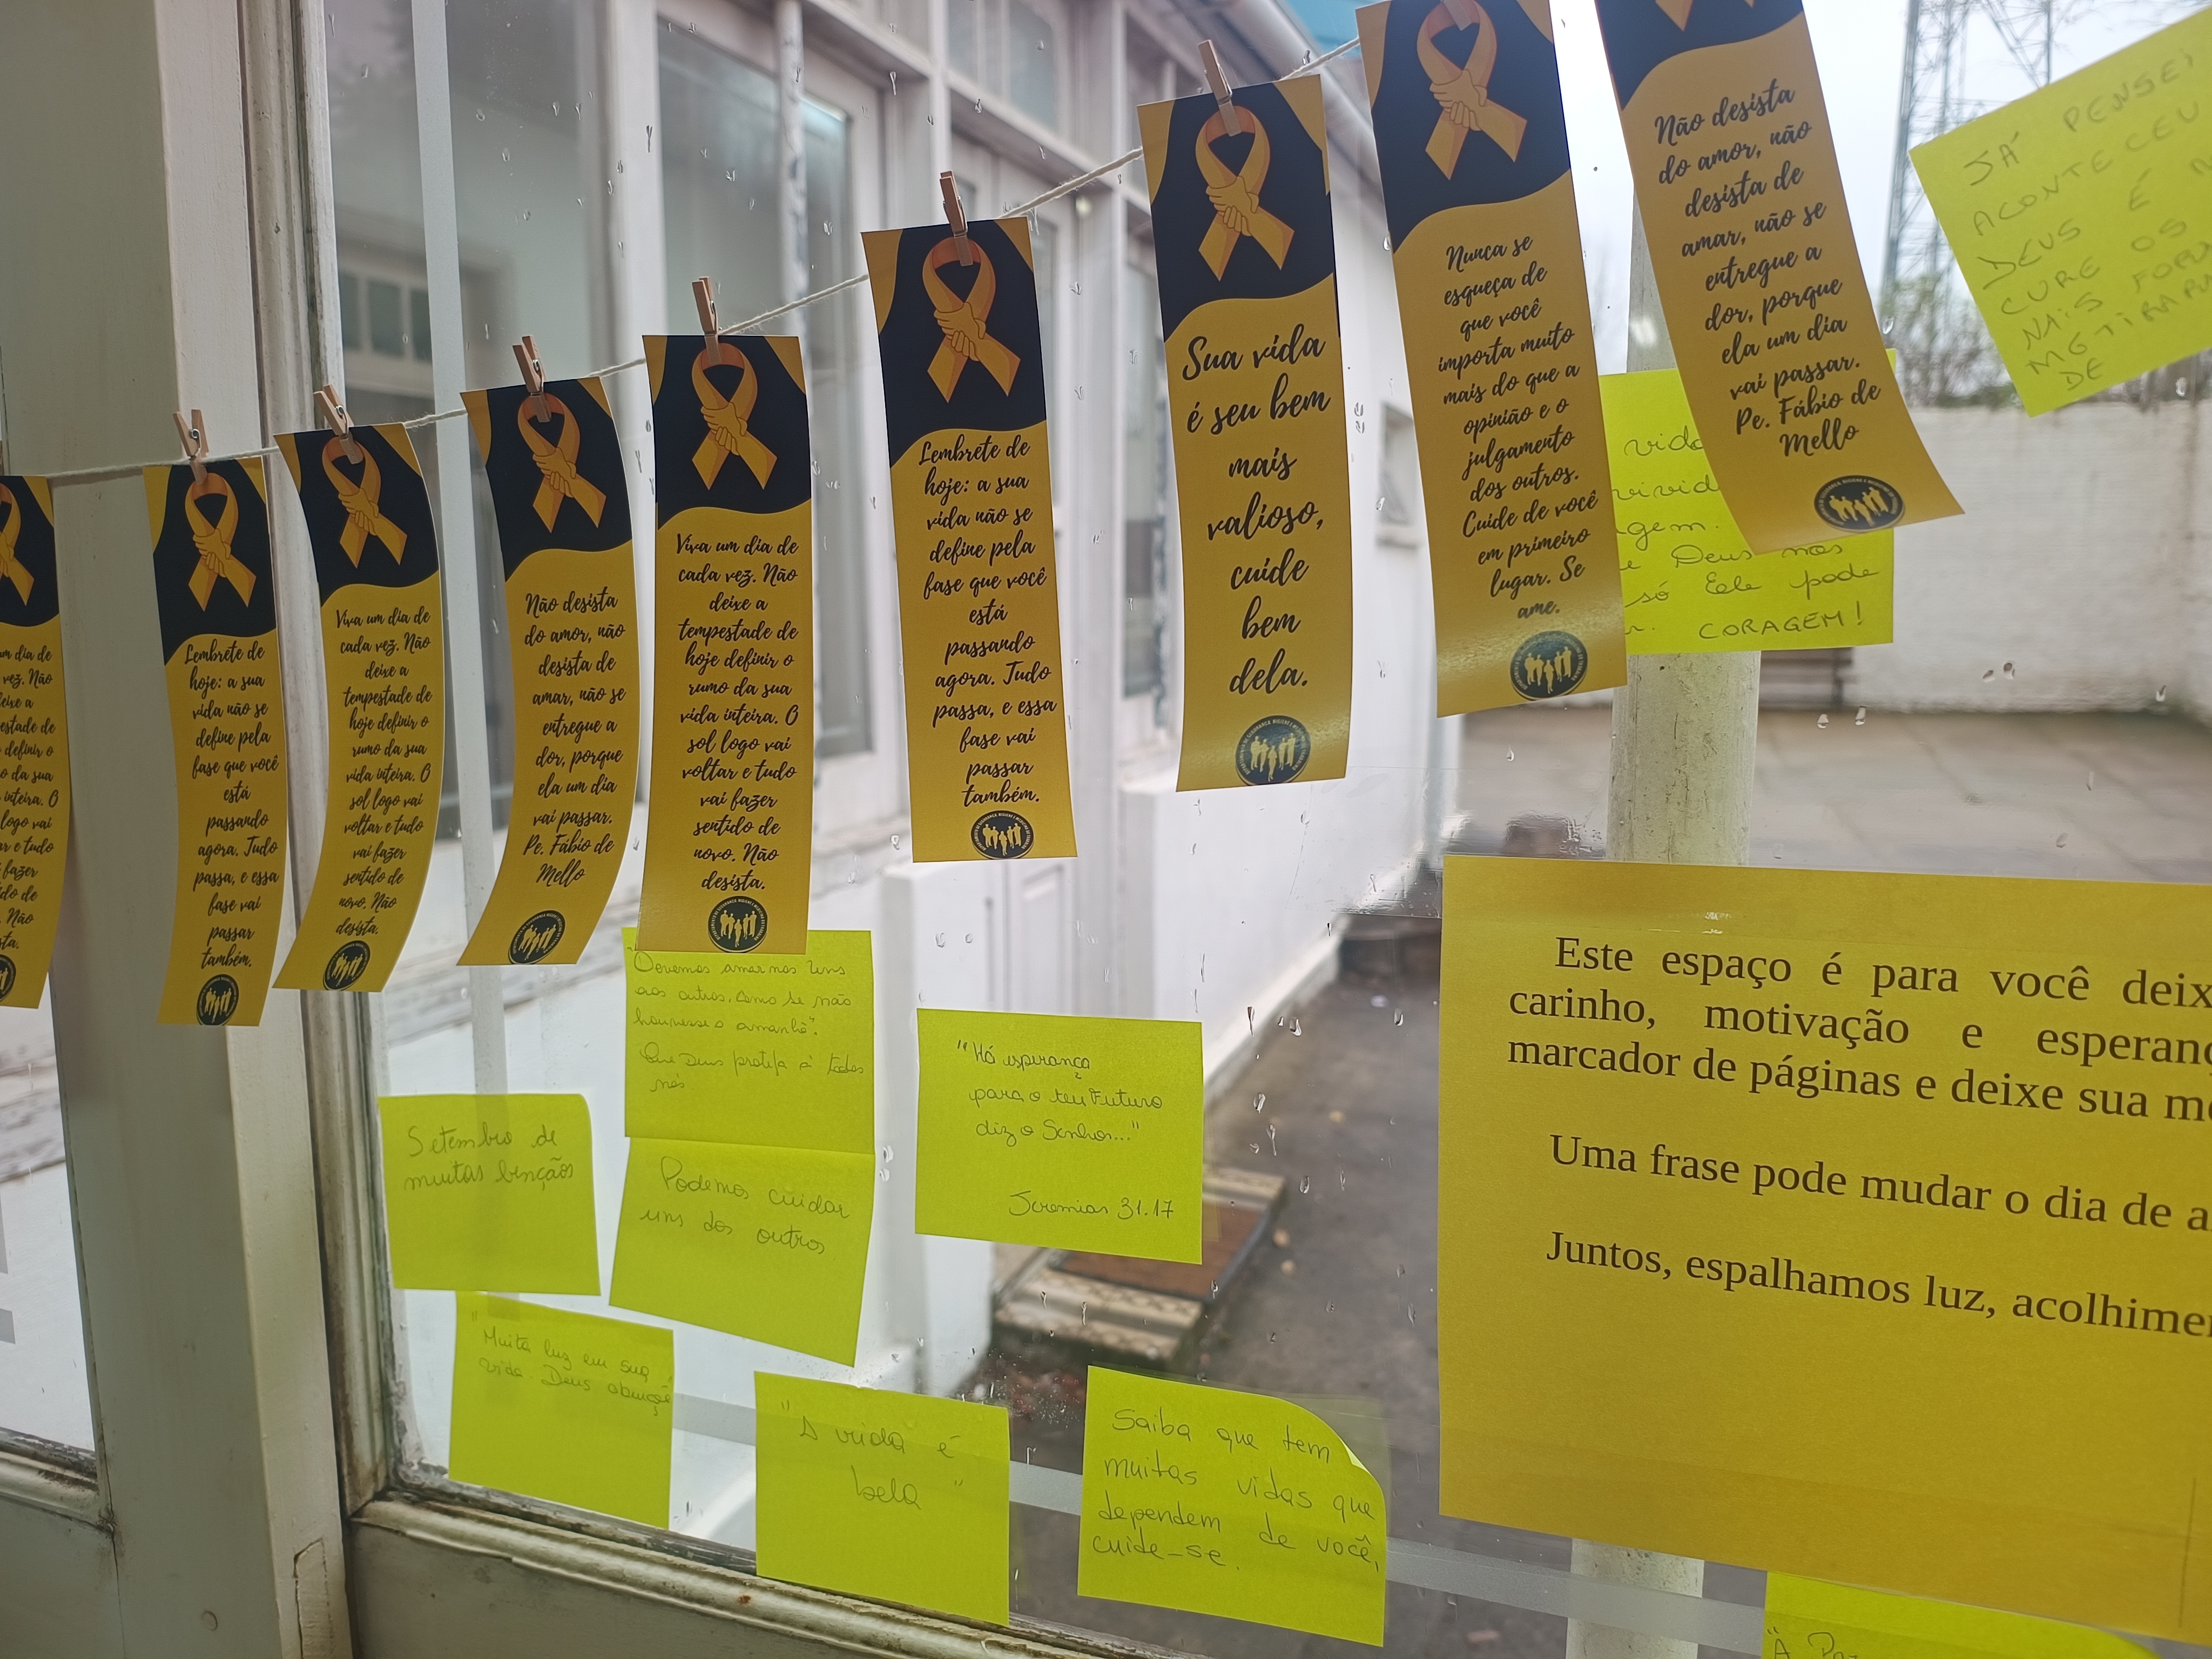 m dia de
vez. Não
eixe a
estade de
definir o
o da sua
inteira. O
logo vai
r e tudo
fazer
ido de
. Não
sta.
Lembrete de
hoje: a sua
vida não se
define pela
fase que você
está
passando
agora. Tudo
passa, e essa
fase vai
passar
também.
Viva um dia de
cada vez. Não
deixe a
tempestade de
hoje definir o
rumo da sua
vida inteira. O
sol logo vai
voltar e tudo
vai fazer
sentido de
novo. Não
desista.
Não desista
do amor, não
desista de
amar, não se
entregue a
dor, porque
ela um dia
vai passar.
Pe. Fábio de
Mello
Viva um dia de
cada vez. Não
deixe a
tempestade de
hoje definir o
rumo da sua
vida inteira. O
sol logo vai
voltar e tudo
vai fazer
sentido de
novo. Não
desista.
Lembrete de
hoje: a sua
vida não se
define pela
fase que você
está
passando
agora. Tudo
passa, e essa
fase vai
passar
também.
Sua vida
é seu bem
mais
valioso,
cuide
bem
dela.
Nunca se
esqueça de
que você
importa muito
mais do que a
opinião e o
julgamento
dos outros.
Cuide de você
em primeiro
lugar. Se
ame.
Não desista
do amor, não
desista de
amar, não se
entregue a
dor, porque
ela um dia
vai passar.
Pe. Fábio de
Mello
JÁ PENSEI
ACONTECEU
DEUS É
CURE OS
MAIS FORM
DE
vida
vivid
gem.
e Deus nos
só Ele pode
r. CORAGEM!
"Devemos amarmos uns
aos outros, como se não
houvesse o amanhã".
Que Deus proteja à todos
nós
"Há esperança
para o teu Futuro
diz o Senhor..."
Jeremias 31.17
Setembro de
muitas bençãos
Podemos cuidar
uns dos outros
"Muita luz em sua
vida. Deus abençõe"
"A vida é
bela"
Saiba que tem
muitas vidas que
dependem de você,
cuide-se.
Este espaço é para você deix
carinho, motivação e esperanç
marcador de páginas e deixe sua me
Uma frase pode mudar o dia de a
Juntos, espalhamos luz, acolhimen
"A Paz